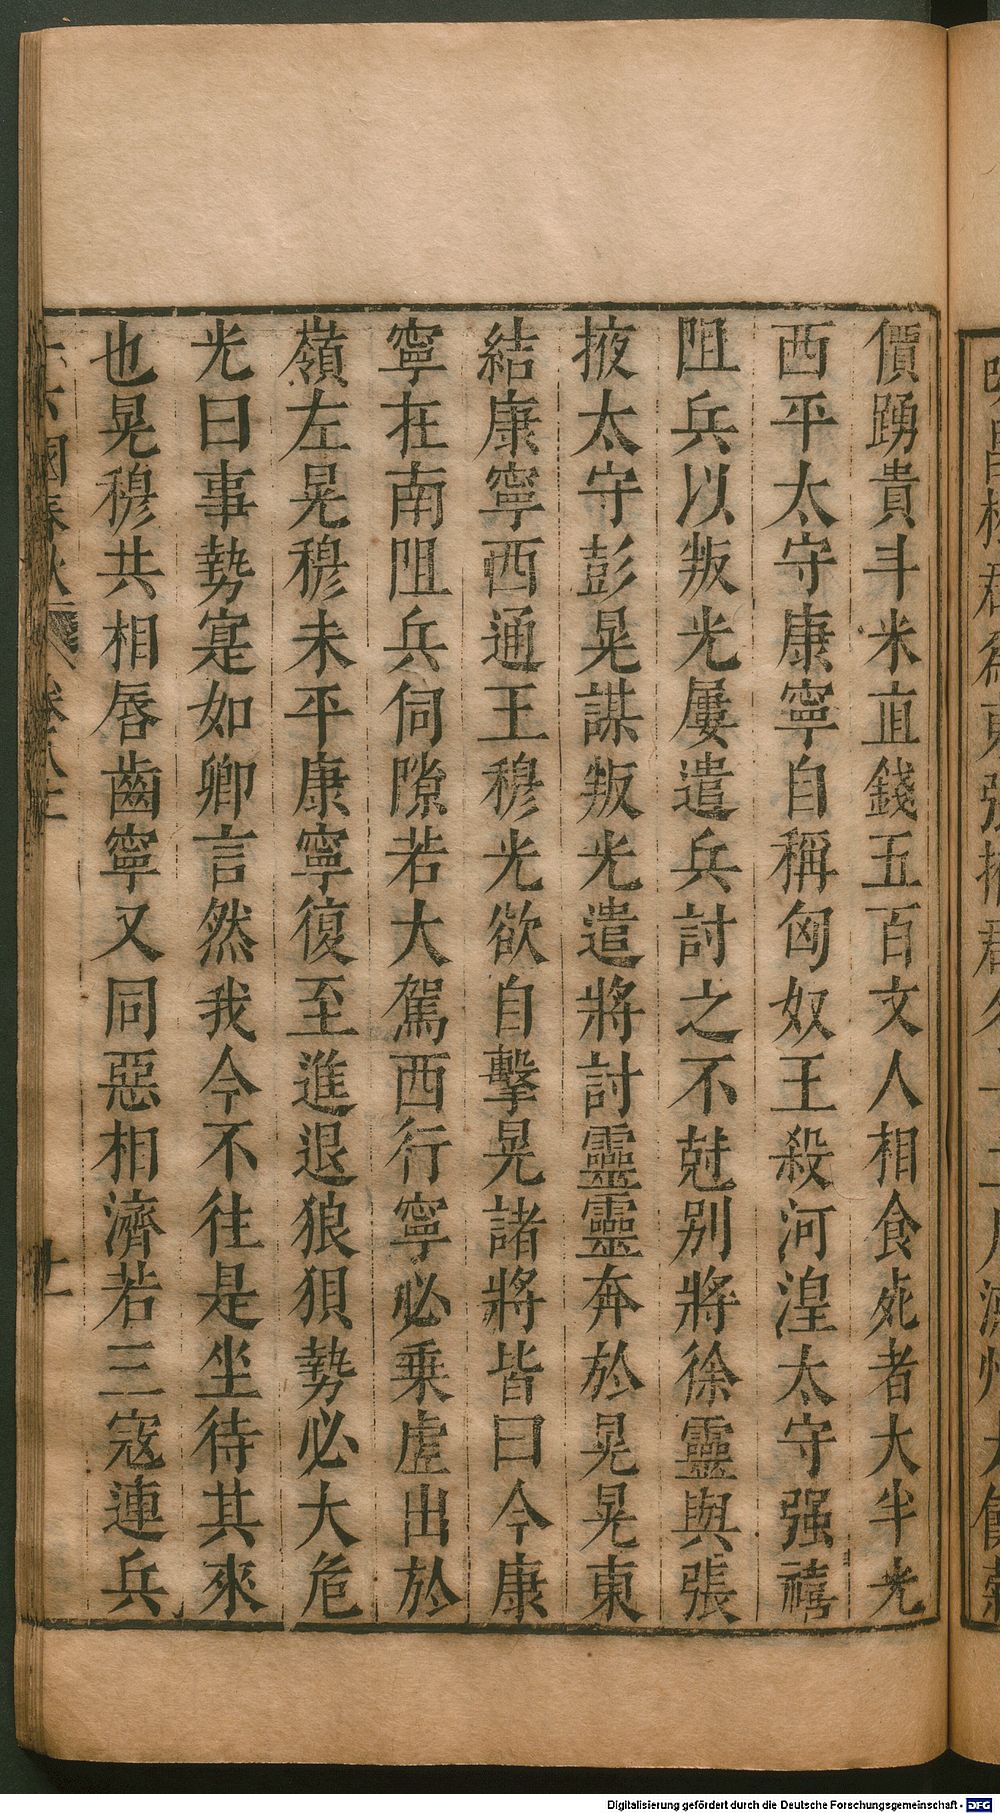 價踴貴斗米直錢五百文人相食死者大半光
西平太守康寧自稱匈奴王殺河湟太守强禧
阻兵以叛光屢遣兵討之不尅别將徐靈與張
掖太守彭晃謀叛光遣將討靈靈奔於晃晃東
結康寧西通王穆光欲自擊晃諸將皆曰今康
寧在南阻兵伺隙若大駕西行寧必乗虛出於
嶺左晃穆未平康寧復至進退狼狽勢必大危
光曰事勢寔如卿言然我今不往是坐待其來
也晃穆共相唇齒寧又同惡相濟若三寇連兵
國春秋
Digitalisierung gefördert durch die Deutsche Forschungsgemeinschaft - DFG